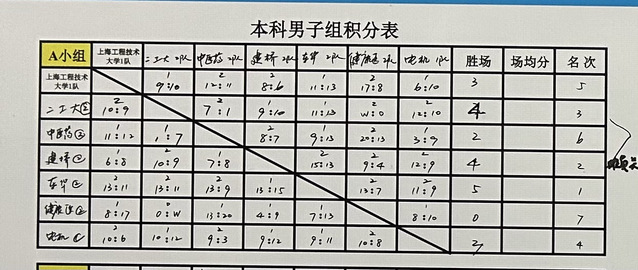 本科男子组积分表
A小组 上海工程技术大学1队 二工大2队 中医药2队 建桥2队 东华2队 健康医2队 电机1队 胜场 场均分 名次
上海工程技术大学1队 1 9:10 2 12:11 2 8:6 1 11:13 2 17:8 1 6:10 3 5
二工大② 2 10:9 2 7:1 1 9:10 1 11:13 2 W:0 2 12:10 4 3
中医药② 1 11:12 1 1:7 2 8:7 1 9:13 2 20:13 1 3:9 2 6
建桥② 1 6:8 2 10:9 1 7:8 2 15:13 2 9:4 2 12:9 4 2
东华② 2 13:11 2 13:11 2 13:9 1 13:15 2 13:7 2 11:9 5 1
② 1 8:17 0 0:W 1 13:20 1 4:9 1 7:13 1 8:10 0 7
电机 2 10:6 1 10:12 2 9:3 1 9:12 1 9:11 2 10:8 3 4